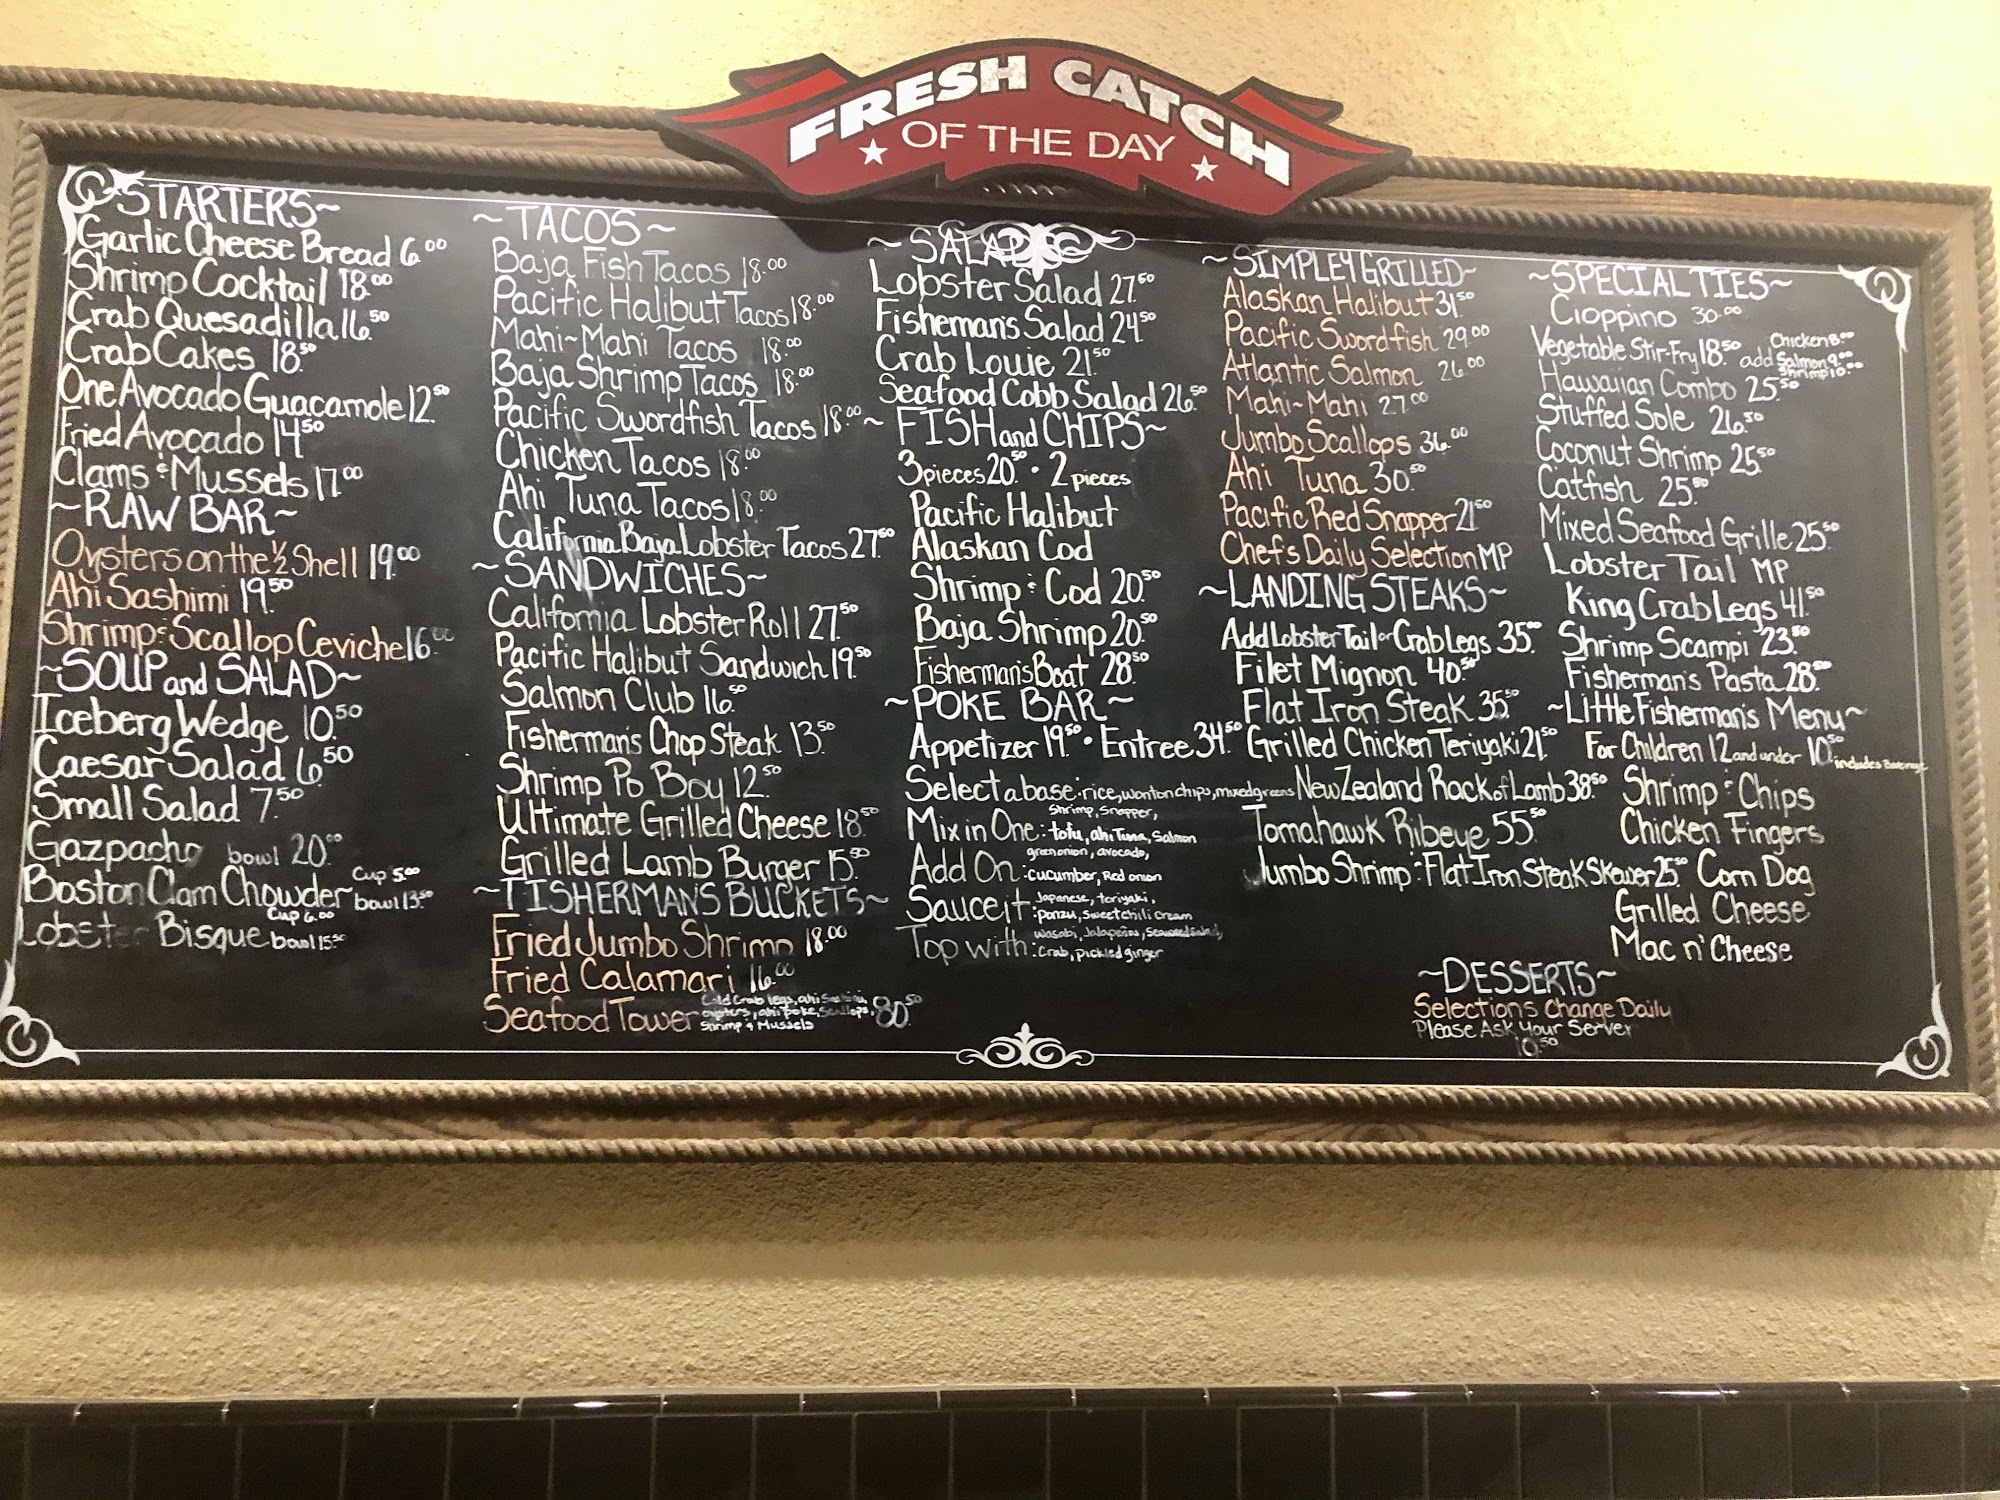 FRESH CATCH
OF THE DAY
~STARTERS~
Garlic Cheese Bread 6.00
Shrimp Cocktail 18.00
Crab Quesadilla 16.50
Crab Cakes 18.50
One Avocado Guacamole 12.50
Fried Avocado 14.50
Clams & Mussels 17.00
~RAW BAR~
Oysters on the ½ Shell 19.00
Ahi Sashimi 19.50
Shrimp & Scallop Ceviche 16.00
~SOUP and SALAD~
Iceberg Wedge 10.50
Caesar Salad 6.50
Small Salad 7.50
Gazpacho bowl 20.00
Boston Clam Chowder Cup 5.00 bowl 13.50
Lobster Bisque Cup 6.00 bowl 15.50
~TACOS~
Baja Fish Tacos 18.00
Pacific Halibut Tacos 18.00
Mahi-Mahi Tacos 18.00
Baja Shrimp Tacos 18.00
Pacific Swordfish Tacos 18.00
Chicken Tacos 18.00
Ahi Tuna Tacos 18.00
California Baja Lobster Tacos 27.50
~SANDWICHES~
California Lobster Roll 27.50
Pacific Halibut Sandwich 19.50
Salmon Club 16.50
Fisherman's Chop Steak 13.50
Shrimp Po Boy 12.50
Ultimate Grilled Cheese 18.50
Grilled Lamb Burger 15.50
~FISHERMAN'S BUCKETS~
Fried Jumbo Shrimp 18.00
Fried Calamari 16.00
Seafood Tower Cold Crab legs, ahi Sashimi, oysters, ahi poke, Scallops, Shrimp & Mussels 80.50
~SALADS~
Lobster Salad 27.50
Fisheman's Salad 24.50
Crab Louie 21.50
Seafood Cobb Salad 26.50
~FISH and CHIPS~
3 pieces 20.50 • 2 pieces
Pacific Halibut
Alaskan Cod
Shrimp & Cod 20.50
Baja Shrimp 20.50
Fisherman's Boat 28.50
~POKE BAR~
Appetizer 19.50 • Entree 34.50
Select a base: rice, wonton chips, mixed greens
Mix in One: Shrimp, Snapper, tofu, ahi Tuna, Salmon
Add On: green onion, avocado, cucumber, Red onion
Sauce it: Japanese, teriyaki, ponzu, sweet chili cream
Top with: wasabi, Jalapeños, Seaweed Salad, Crab, pickled ginger
~SIMPLEY GRILLED~
Alaskan Halibut 31.50
Pacific Swordfish 29.00
Atlantic Salmon 26.00
Mahi-Mahi 27.00
Jumbo Scallops 36.00
Ahi Tuna 30.50
Pacific Red Snapper 21.50
Chef's Daily Selection MP
~LANDING STEAKS~
Add Lobster Tail or Crab Legs 35.00
Filet Mignon 40.50
Flat Iron Steak 35.50
Grilled Chicken Teriyaki 21.50
New Zealand Rack of Lamb 38.50
Tomahawk Ribeye 55.50
Jumbo Shrimp & Flat Iron Steak Skewer 25.50
~SPECIALTIES~
Cioppino 30.00
Vegetable Stir-Fry 18.50 add Chicken 8.00 Salmon 9.00 Shrimp 10.00
Hawaiian Combo 25.50
Stuffed Sole 26.50
Coconut Shrimp 25.50
Catfish 25.50
Mixed Seafood Grille 25.50
Lobster Tail MP
King Crab Legs 41.50
Shrimp Scampi 23.50
Fisherman's Pasta 28.50
~Little Fisherman's Menu~
For Children 12 and under 10.50 includes Beverage
Shrimp & Chips
Chicken Fingers
Corn Dog
Grilled Cheese
Mac n' Cheese
~DESSERTS~
Selections Change Daily
Please Ask Your Server
10.50